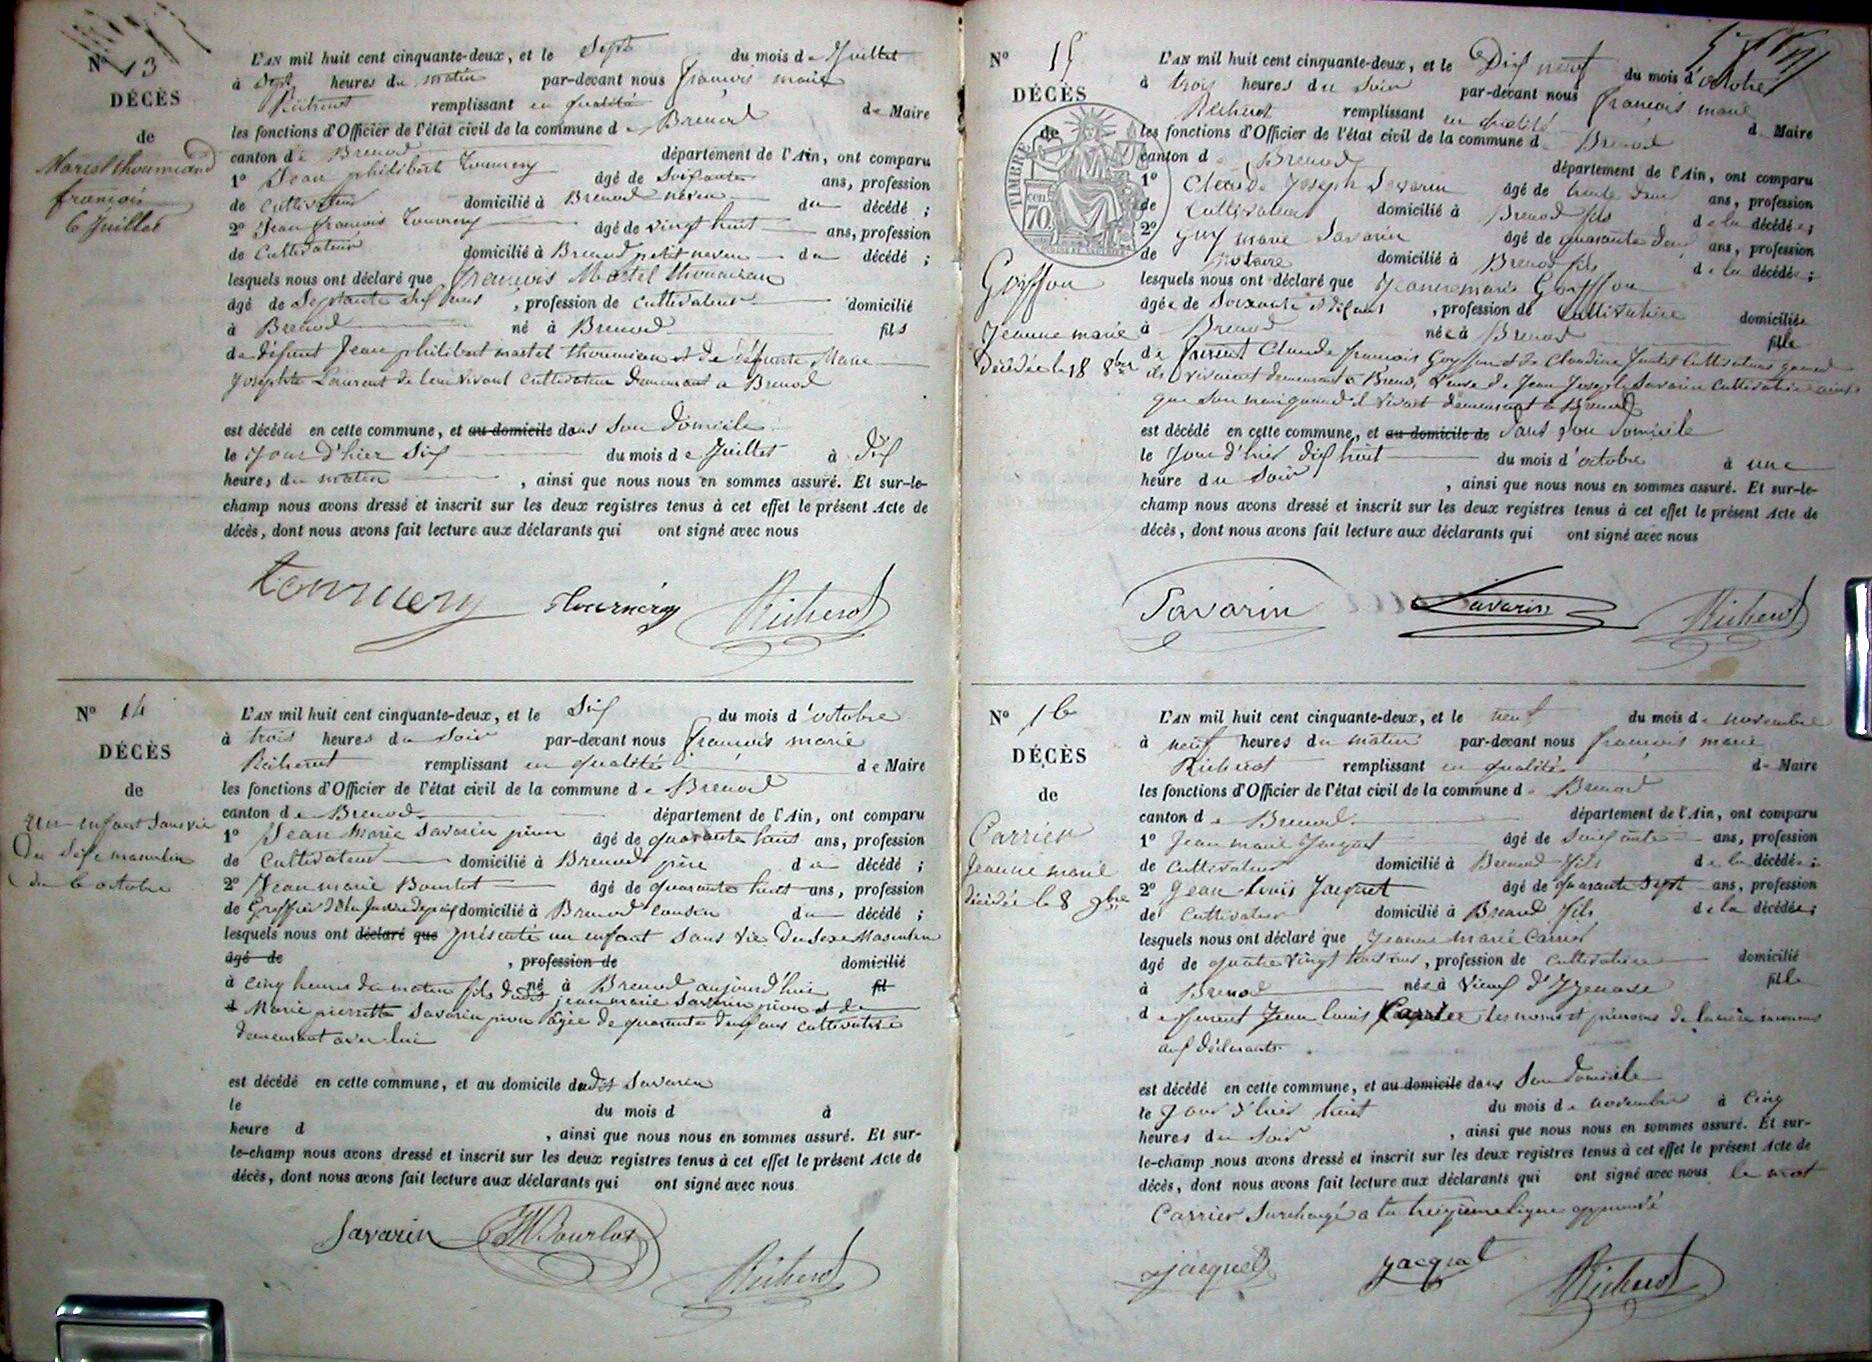 N° 13
DÉCÈS
de
Martel thoumieand
françois
6 Juillet
L'AN mil huit cent cinquante-deux, et le Sept du mois de Juillet
à Sept heures du matin par-devant nous françois marie
Richerot remplissant en qualité de Maire
les fonctions d'Officier de l'état civil de la commune de Brenod
canton de Brenod département de l'Ain, ont comparu
1° Jean philibert Tournery âgé de Soixante ans, profession
de Cultivateur domicilié à Brenod neveu du décédé ;
2° Jean françois Tournery âgé de vingt huit ans, profession
de Cultivateur domicilié à Brenod petit neveu du décédé ;
lesquels nous ont déclaré que françois Martel thoumieau
âgé de Septante Six ans, profession de cultivateur domicilié
à Brenod né à Brenod fils
de défunt Jean philibert martel thoumieau et de défunte Marie
Josephte Laurent de leur vivant cultivateur demeurant à Brenod
est décédé en cette commune, et au domicile dans son domicile
le jour d'hier Six du mois de Juillet à dix
heures du matin , ainsi que nous nous en sommes assuré. Et sur-le-
champ nous avons dressé et inscrit sur les deux registres tenus à cet effet le présent Acte de
décès, dont nous avons fait lecture aux déclarants qui ont signé avec nous
Tournery Tournery Richerot
N° 14
DÉCÈS
de
un enfant sans vie
du sexe masculin
du 6 octobre
L'AN mil huit cent cinquante-deux, et le Six du mois d'octobre
à trois heures du soir par-devant nous françois marie
Richerot remplissant en qualité de Maire
les fonctions d'Officier de l'état civil de la commune de Brenod
canton de Brenod département de l'Ain, ont comparu
1° Jean Marie Savarin âgé de quarante ans, profession
de Cultivateur domicilié à Brenod père du décédé ;
2° Jean marie Bourlot âgé de quarante huit ans, profession
de Greffier de la Justice de paix domicilié à Brenod cousin du décédé ;
lesquels nous ont déclaré que présenté un enfant sans vie du sexe Masculin
âgé de , profession de domicilié
à cinq heures du matin fils dudit né à Brenod aujourd'hui fil
jean marie Savarin et de
Marie pierrette Savarin âgée de quarante ans cultivatrice
demeurant avec lui
est décédé en cette commune, et au domicile dudit Savarin
le du mois d à
heure d , ainsi que nous nous en sommes assuré. Et sur-
le-champ nous avons dressé et inscrit sur les deux registres tenus à cet effet le présent Acte de
décès, dont nous avons fait lecture aux déclarants qui ont signé avec nous
Savarin JM Bourlot Richerot
N° 15
DÉCÈS
de
TIMBRE
70
Goyffon
Jeanne marie
décédée le 18 8bre
L'AN mil huit cent cinquante-deux, et le Dix neuf du mois d'octobre
à trois heures du soir par-devant nous françois marie
Richerot remplissant en qualité de Maire
les fonctions d'Officier de l'état civil de la commune de Brenod
canton d Brenod département de l'Ain, ont comparu
1° Claude Joseph Savarin âgé de trente deux ans, profession
de Cultivateur domicilié à Brenod fils de la décédée ;
2° Guy marie Savarin âgé de quarante deux ans, profession
de notaire domicilié à Brenod fils de la décédée ;
lesquels nous ont déclaré que Jeanne marie Goyffon
âgée de soixante et dix ans, profession de Cultivatrice domiciliée
à Brenod née à Brenod fille
de Claude françois Goyffon et de Claudine Cultivateurs quand
ils vivaient demeurant à Brenod, Veuve de Jean Joseph Savarin cultivatrice ainsi
que son mari quand il vivait demeurant à Brenod
est décédé en cette commune, et au domicile de dans son domicile
le jour d'hier dix huit du mois d'octobre à une
heure du soir , ainsi que nous nous en sommes assuré. Et sur-le-
champ nous avons dressé et inscrit sur les deux registres tenus à cet effet le présent Acte de
décès, dont nous avons fait lecture aux déclarants qui ont signé avec nous
Savarin Savarin Richerot
N° 16
DÉCÈS
de
Carrier
Jeanne marie
décédée le 8 9bre
L'AN mil huit cent cinquante-deux, et le neuf du mois de novembre
à neuf heures du matin par-devant nous françois marie
Richerot remplissant en qualité de Maire
les fonctions d'Officier de l'état civil de la commune de Brenod
canton de Brenod département de l'Ain, ont comparu
1° Jean marie Jacquet âgé de soixante ans, profession
de Cultivateur domicilié à Brenod fils de la décédée ;
2° Jean Louis Jacquet âgé de quarante sept ans, profession
de Cultivateur domicilié à Brenod fils de la décédée ;
lesquels nous ont déclaré que Jeanne marie Carrier
âgé de quatre vingt ans, profession de cultivatrice domicilié
à Brenod née à Vieux d'Izenave fille
de Jean Louis Carrier, les noms et prénoms de la mère inconnus
aux déclarants.
est décédé en cette commune, et au domicile dans son domicile
le jour d'hier huit du mois de novembre à cinq
heures du soir , ainsi que nous nous en sommes assuré. Et sur-
le-champ nous avons dressé et inscrit sur les deux registres tenus à cet effet le présent Acte de
décès, dont nous avons fait lecture aux déclarants qui ont signé avec nous le mot
Carrier surchargé à la treizième ligne approuvé
Jacquet Jacquet Richerot